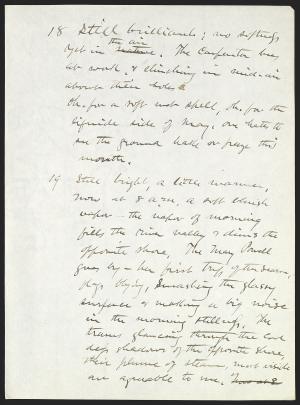 18 Still brilliant; no softness
yet in the air nature. The Carpenter bees
at work & clinching in mid-air
about their holes
Oh. for a soft wet spell, Oh. for the
liquide side of May, one hates to
see the ground bake or freeze this
month.
19 Still bright, a little warmer,
now at 8 a.m, a soft bluish
vapor - the vapor of morning
fills the river valley & dims the
opposite shore. The Mary Powell
goes by - her first trip of the season,
flags flying, smashing the glassy
surface & making a big noise
in the morning stillness. The
trains glancing through the cool
deep shadows of the opposite shore,
their plume of steam, most visible
are agreeable to me.